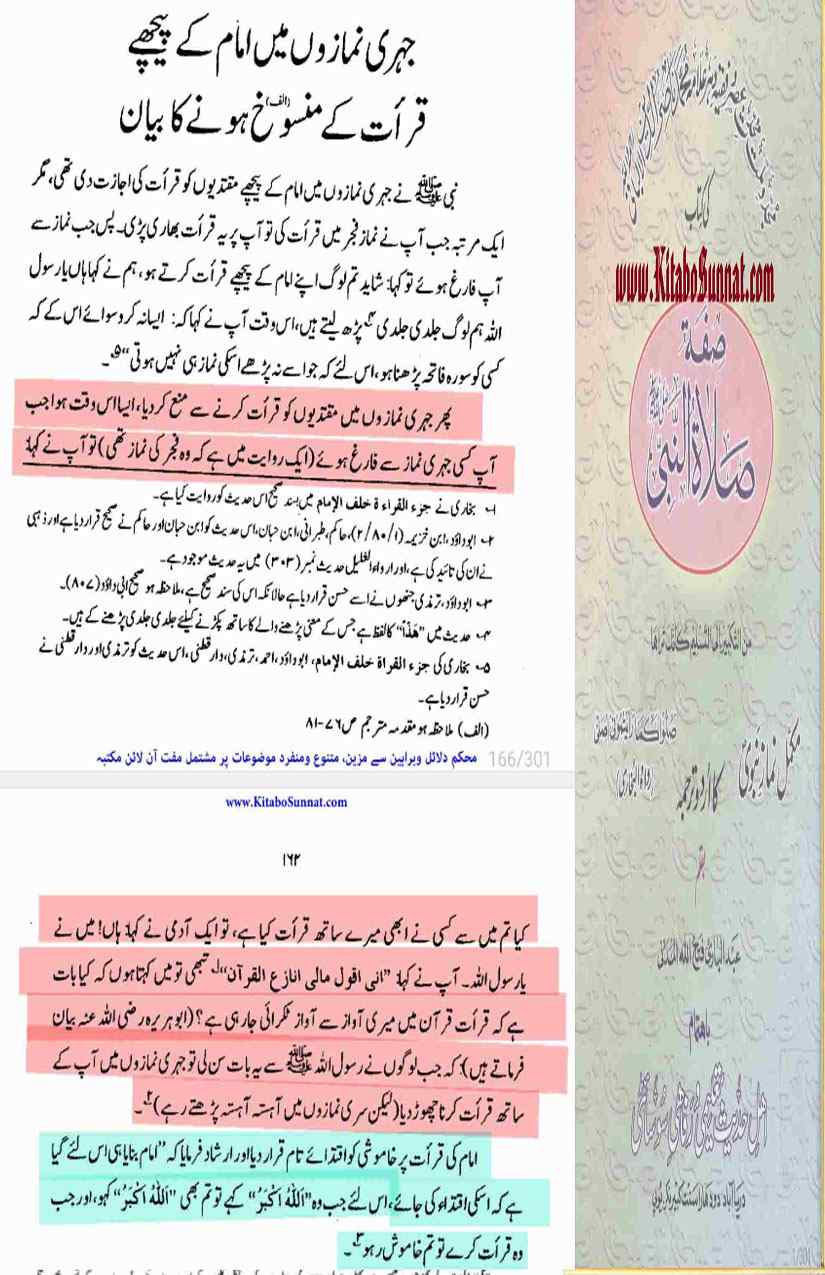 جہری نمازوں میں امام کے پیچھے
قرأت کے منسوخ (الف) ہونے کا بیان
نبی ﷺ نے جہری نمازوں میں امام کے پیچھے مقتدیوں کو قرأت کی اجازت دی تھی، مگر
ایک مرتبہ جب آپ نے نماز فجر میں قرأت کی تو آپ پر یہ قرأت بھاری پڑی۔ پس جب نماز سے
آپ فارغ ہوئے تو کہا: شاید تم لوگ اپنے امام کے پیچھے قرأت کرتے ہو، ہم نے کہا ہاں یا رسول
اللہ ہم لوگ جلدی جلدی ۴ پڑھ لیتے ہیں، اس وقت آپ نے کہا کہ: ایسا نہ کرو سوائے اس کے کہ
کسی کو سورہ فاتحہ پڑھنا ہو، اس لئے کہ جو اسے نہ پڑھے اسکی نماز ہی نہیں ہوتی“ ۵۔
پھر جہری نمازوں میں مقتدیوں کو قرأت کرنے سے منع کر دیا، ایسا اس وقت ہوا جب
آپ کسی جہری نماز سے فارغ ہوئے (ایک روایت میں ہے کہ وہ فجر کی نماز تھی) تو آپ نے کہا:
۱۔ بخاری نے جزء القراءۃ خلف الإمام میں بسند صحیح اس حدیث کو روایت کیا ہے۔
۲۔ ابوداؤد، ابن خزیمہ (۲/۸۰/۱)، حاکم، طبرانی، ابن حبان، اس حدیث کو ابن حبان اور حاکم نے صحیح قرار دیا ہے اور ذہبی
نے ان کی تائید کی ہے، اور ارواء الغلیل حدیث نمبر (۳۰۳) میں یہ حدیث موجود ہے۔
۳۔ ابوداؤد، ترمذی جنھوں نے اسے حسن قرار دیا ہے حالانکہ اس کی سند صحیح ہے، ملاحظہ ہو صحیح ابی داؤد (۸۰۷)۔
۴۔ حدیث میں ”ھَذًّا“ کا لفظ ہے جس کے معنی پڑھنے والے کا ساتھ پکڑنے کیلئے جلدی جلدی پڑھنے کے ہیں۔
۵۔ بخاری کی جزء القراۃ خلف الإمام، ابوداؤد، احمد، ترمذی، دار قطنی، اس حدیث کو ترمذی اور دار قطنی نے
حسن قرار دیا ہے۔
(الف) ملاحظہ ہو مقدمہ مترجم ص ۷۶-۸۱
محکم دلائل وبراہین سے مزین، متنوع ومنفرد موضوعات پر مشتمل مفت آن لائن مکتبہ
166/301
www.KitaboSunnat.com
۱۶۲
کیا تم میں سے کسی نے ابھی میرے ساتھ قرأت کیا ہے، تو ایک آدمی نے کہا: ہاں! میں نے
یا رسول اللہ۔ آپ نے کہا: ”انی اقول مالی انازع القرآن“ ۱ تبھی تو میں کہتا ہوں کہ کیا بات
ہے کہ قرأت قرآن میں میری آواز سے آواز ٹکرائی جا رہی ہے؟ (ابو ہریرہ رضی اللہ عنہ بیان
فرماتے ہیں): کہ جب لوگوں نے رسول اللہ ﷺ سے یہ بات سن لی تو جہری نمازوں میں آپ کے
ساتھ قرأت کرنا چھوڑ دیا (لیکن سری نمازوں میں آہستہ آہستہ پڑھتے رہے) ۲۔
امام کی قرأت پر خاموشی کو اقتدائے تام قرار دیا اور ارشاد فرمایا کہ ”امام بنایا ہی اس لئے گیا
ہے کہ اسکی اقتداء کی جائے، اس لئے جب وہ ”اَللّٰهُ اَكْبَرُ“ کہے تو تم بھی ”اَللّٰهُ اَكْبَرُ“ کہو، اور جب
وہ قرأت کرے تو تم خاموش رہو ۳۔
کی کتاب
www.KitaboSunnat.com
صفة
صلاة النبي ﷺ
من التكبير إلى التسليم كأنك تراها
صلوا كما رأيتموني أصلي
(رواه البخاري)
مکمل نماز نبوی
کا اردو ترجمہ
بقلم
عبد الباری فتح اللہ المدنی
باہتمام
1/301